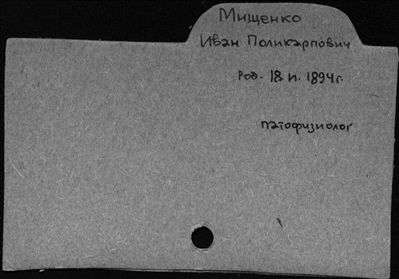 Мищенко
Иван Поликарпович
Род. 18 И. 1894 г.
патофизиолог